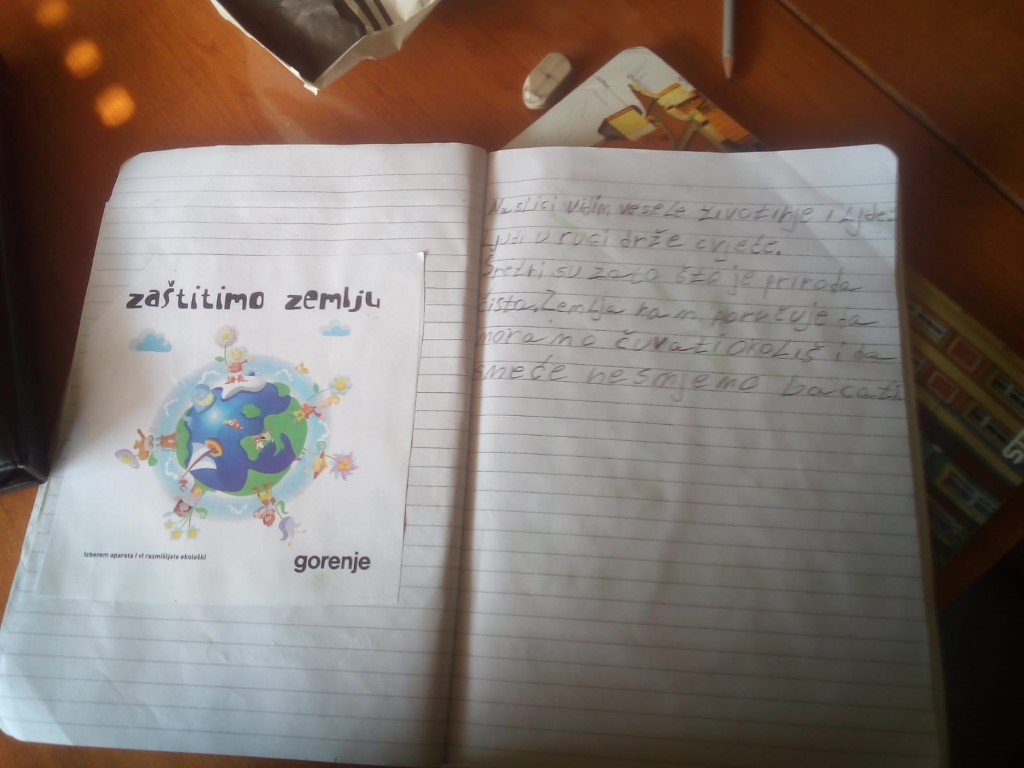 zaštitimo zemlju
Izborom aparata i vi razmišljate ekološki
gorenje
Na slici vidim vesele životinje i ljde.
Ljudi u ruci drže cvjeće.
Sretni su zato što je priroda
čista. Zemlja nam poručuje da
moramo čuvati okoliš i da
smeće nesmjemo bacati